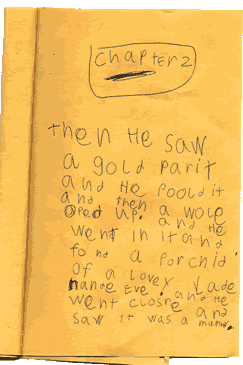 chapter 2
then He saw
a gold parit
and He poold it
and then
oped up! a wole
and He
went in it and
fond a porchid
of a lovey Lade
nande Eve! and He
went closre and
saw it was a mumm.